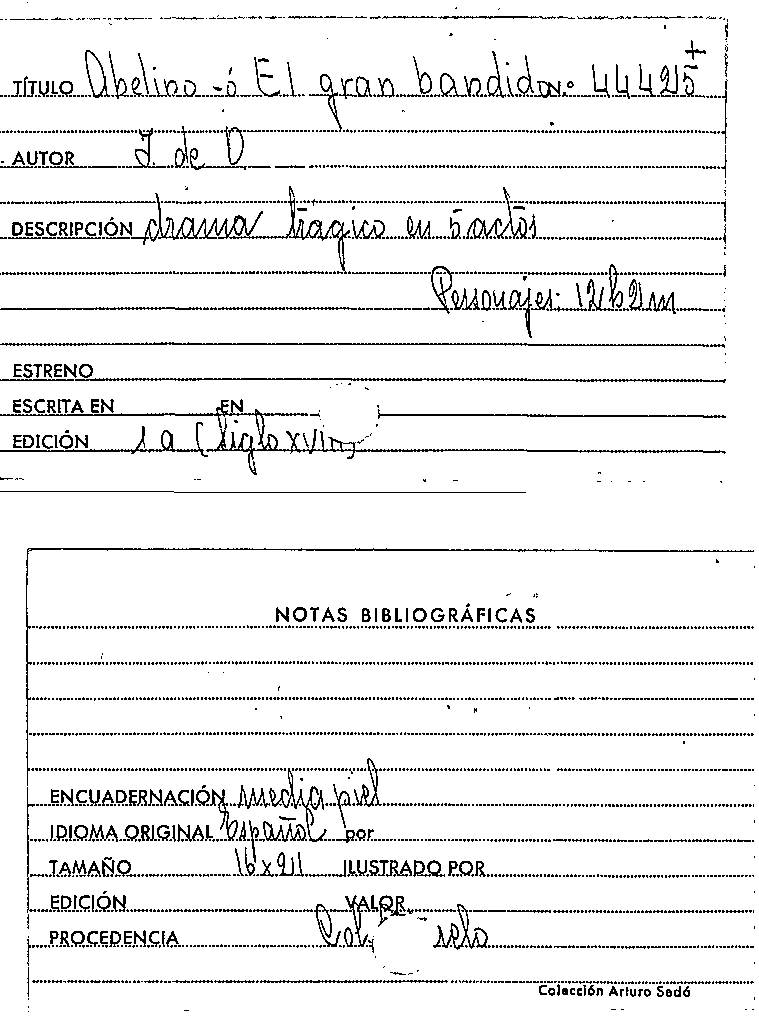 TÍTULO Abelino -ó El gran bandido N.º 44425
AUTOR J. de O
DESCRIPCIÓN drama trágico en 5 actos
Personajes: 12h2m
ESTRENO
ESCRITA EN EN
EDICIÓN 1a (Siglo
NOTAS BIBLIOGRÁFICAS
ENCUADERNACIÓN media piel
IDIOMA ORIGINAL Español por
TAMAÑO 16 x 911 ILUSTRADO POR
EDICIÓN VALOR
PROCEDENCIA Col.
Colección Arturo Sedó